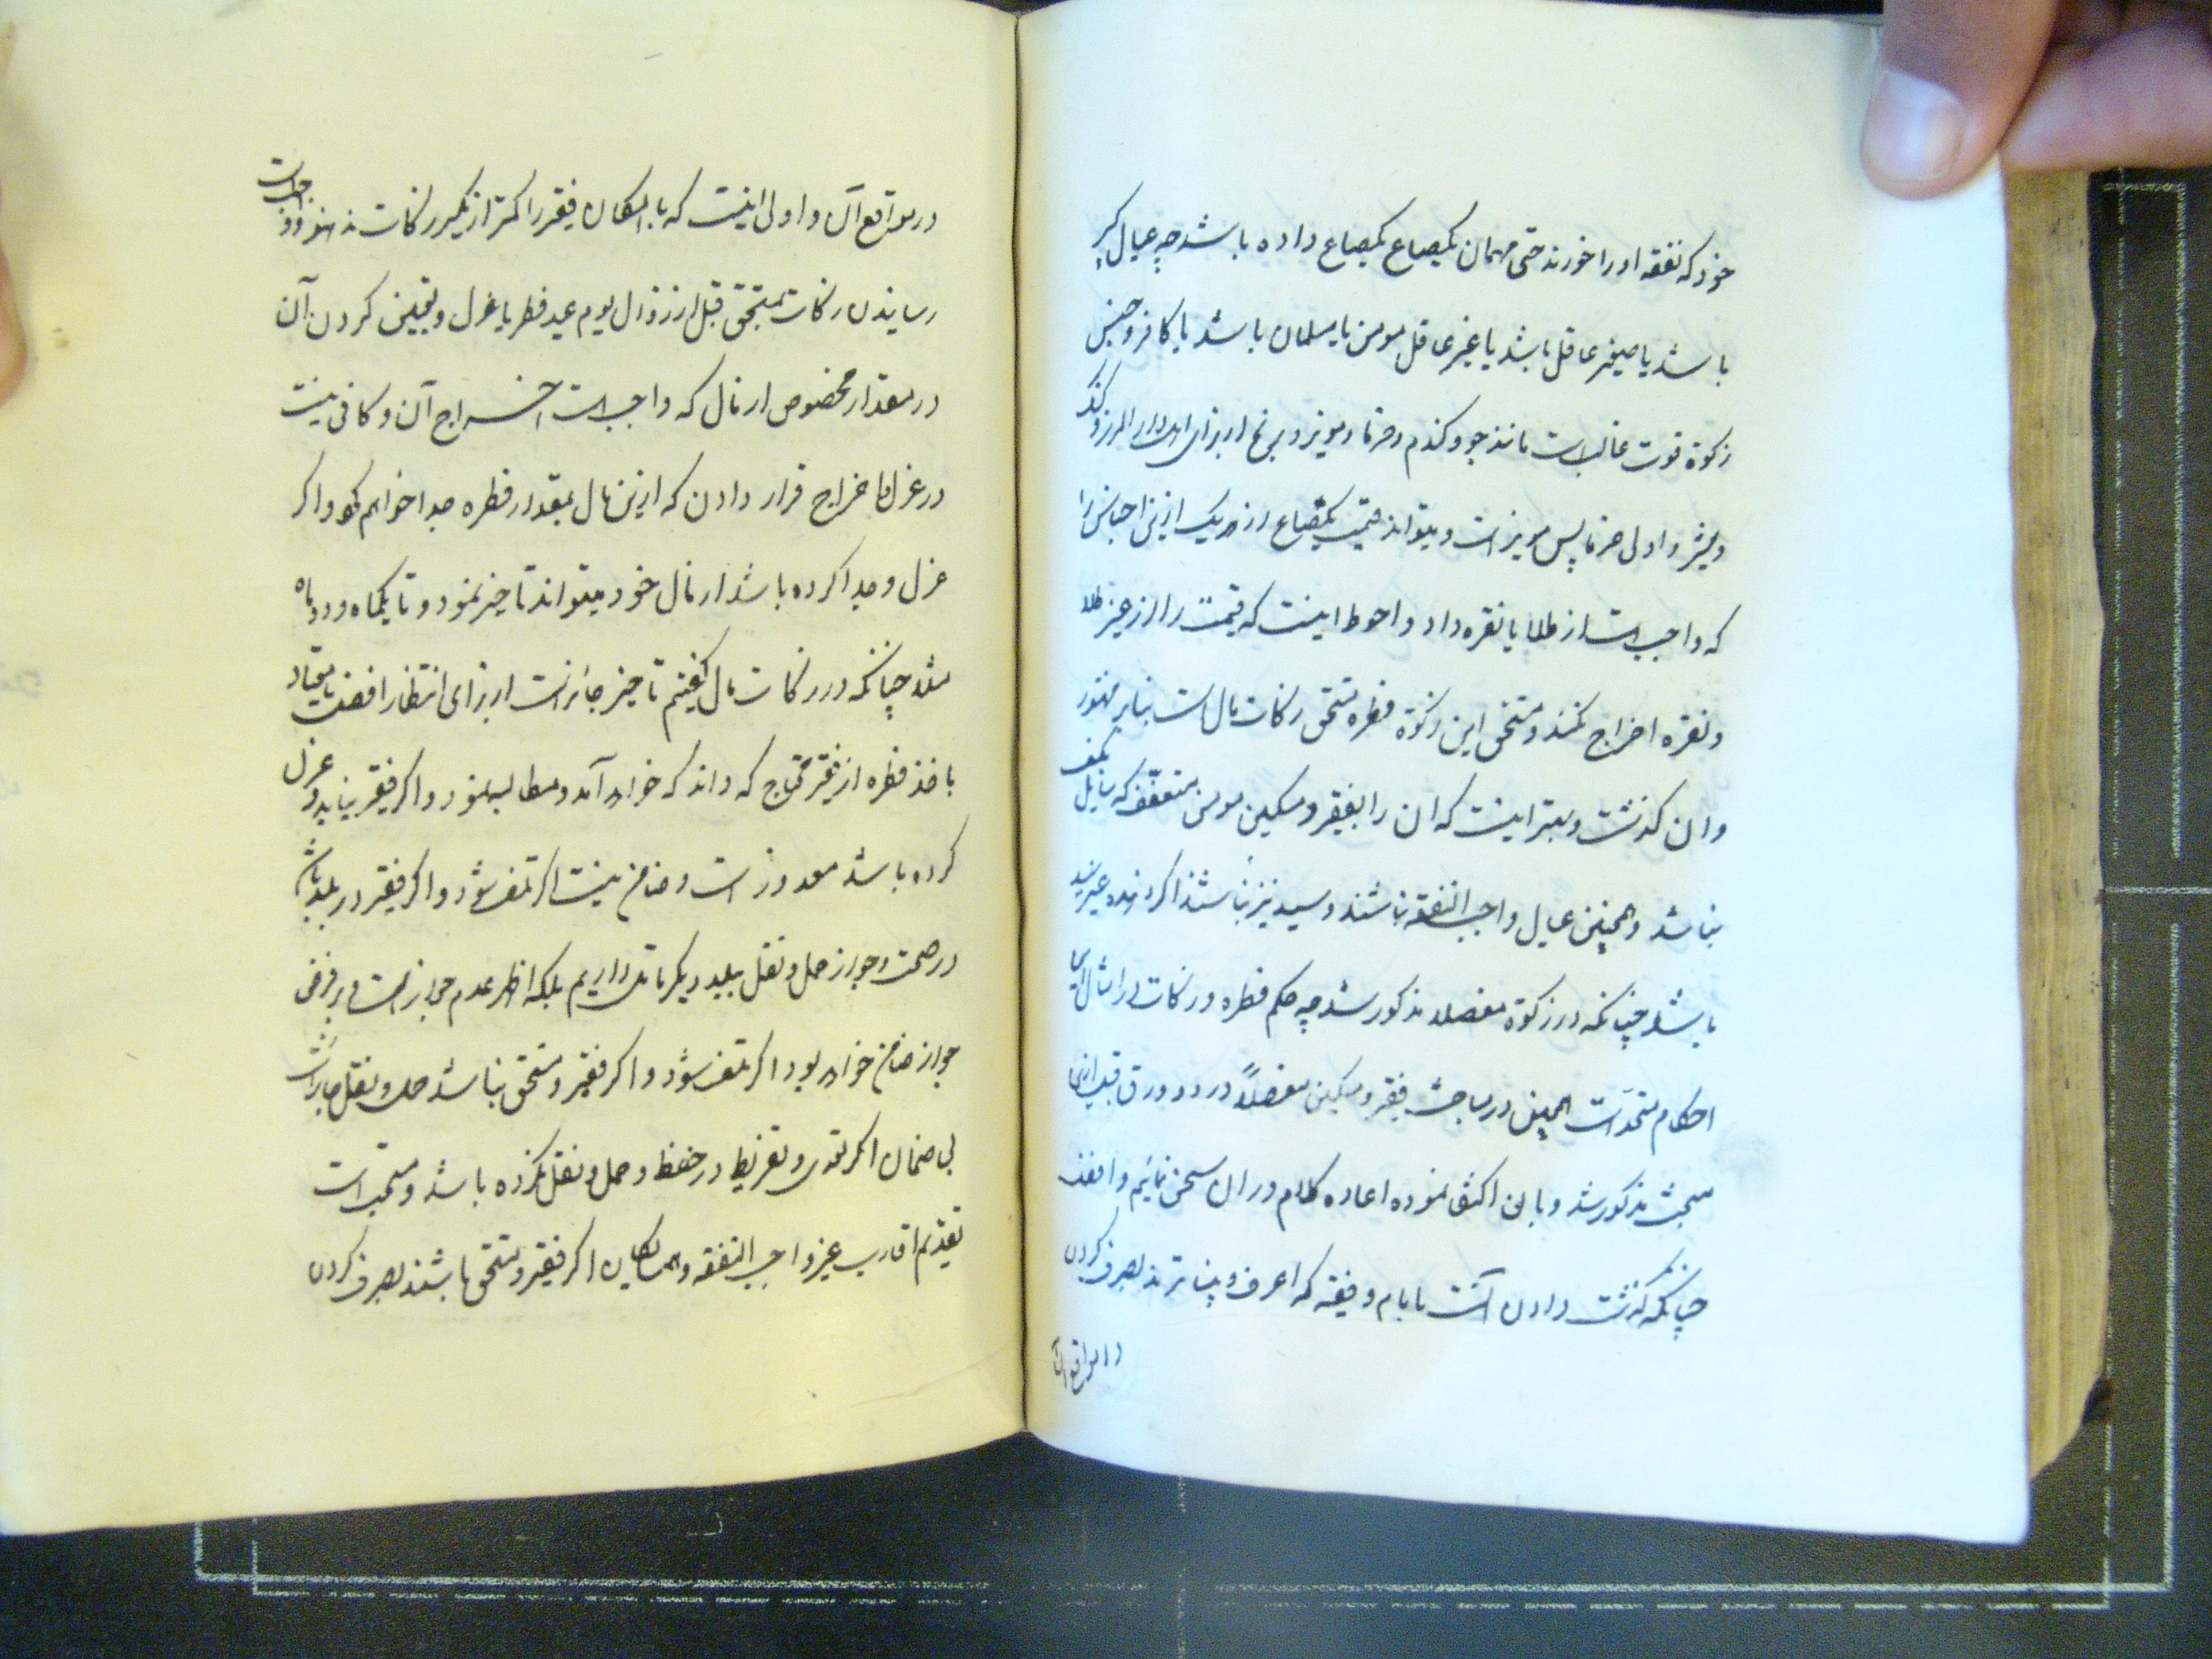 خود که نفقه او را خورند حتی مهمان یکصاع یکصاع داده باشد چه عیال کبیر
باشد یا صغیر عاقل باشد یا غیر عاقل مومن یا مسلمان باشد یا کافر و جنس
زکوة قوت غالب است مانند جو و کندم و خرما و مویز و برنج از برای اهل
و شیر و اولی خرما پس مویز است و میتواند قیمت یکصاع از هر یک ازین اجناس را
که واجب است از طلا یا نقره داد و احوط اینست که قیمت را از غیر طلا
و نقره اخراج نکنند و مستحق این زکوة فطره مستحق زکات مال است بنابر مشهور
و ان کذشت و بهتر اینست که ان را بفقیر و مسکین مومن متعفف که سایل بکف
نباشد و همچنین عیال واجب النفقه نباشند و سید نیز نباشند اکر دهنده غیر سید
باشد چنانکه در زکوة مفصلا مذکور شد چه حکم فطره و زکات در امثال این
احکام متحد است همچنین در مباحث فقیر و مسکین مفصلاً در دو ورق قبل ازین
مبحث مذکور شد و باین اکتفا نموده اعاده کلام در ان سخن نمائیم و افضل
چنانکه کذشت دادن آنست بامام و فقیه که اعرف و بیناترند بصرف کردن
در مواقع آن
در مواقع آن و اولی اینست که با امکان فقیر را کمتر از یکسر زکات ندهند و واجب است
رسانیدن زکات بمستحق قبل از زوال یوم عید فطر یا عزل و تعیین کردن آن
در مقدار مخصوص از مال که واجب است اخراج آن و کافی نیست
در عزل یا اخراج قرار دادن که ازین مال بمقدار فطره جدا خواهم کرد و اکر
عزل و جدا کرده باشد از مال خود میتواند تاخیر نمود و تا یکماه و دو ماه
مثلا چنانکه در زکات مال کفتیم تاخیر جائز است از برای انتظار افضل یا معتاد
باخذ فطره از فقیر محتاج که داند که خواهد آمد و مطالبه نمود و اکر فقیر نیاید و عزل
کرده باشد معذور است و ضامن نیست اکر تلف شود و اکر فقیر در بلد باشد
در صحت و جواز حمل و نقل ببلد دیکر تامل داریم بلکه اظهر عدم جواز است و بر فرض
جواز ضامن خواهد بود اکر تلف شود و اکر فقیر و مستحق نباشد حمل و نقل جایز است
بی ضمان اکر تعدی و تفریط در حفظ و حمل و نقل نکرده باشد و مستحب است
تقدیم اقارب غیر واجب النفقه و همسایکان اکر فقیر و مستحق باشند بصرف کردن